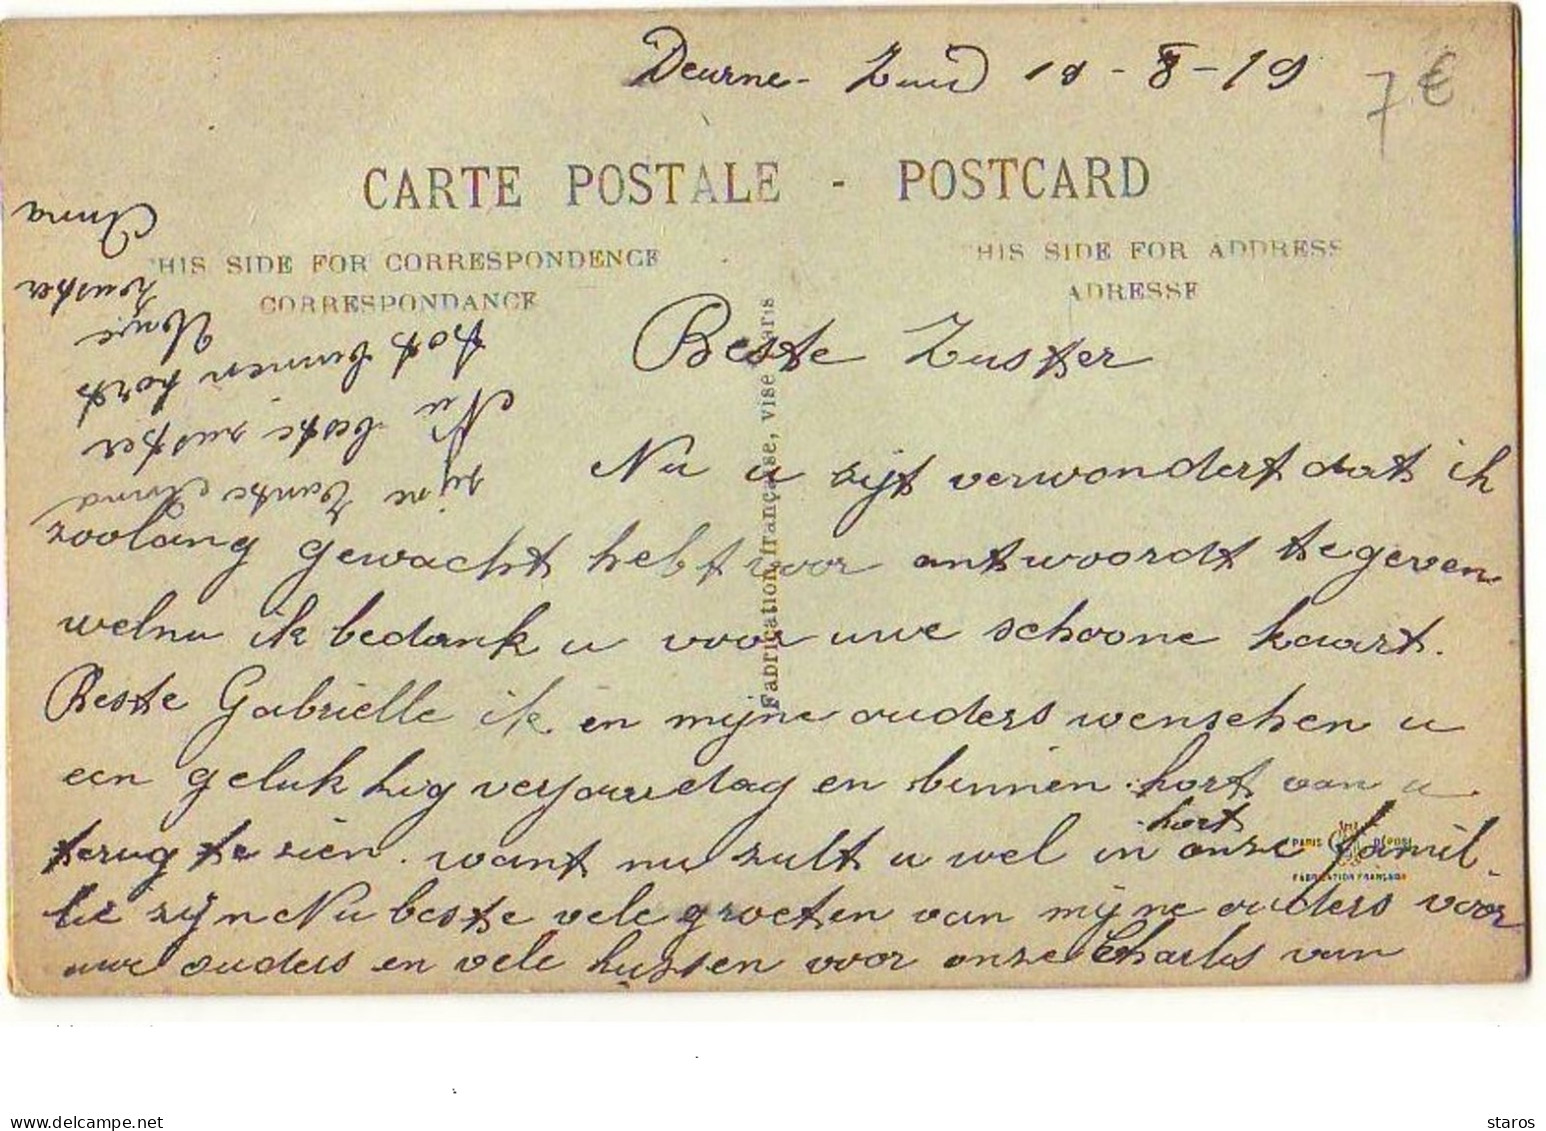 Deurne - Zuid 10 - 8 - 19
7 €
CARTE POSTALE - POSTCARD
THIS SIDE FOR CORRESPONDENCE
CORRESPONDANCE
THIS SIDE FOR ADDRESS
ADRESSE
Fabrication française, vise Paris
Beste Zuster
Nu u zijt verwondert dat ik
zoolang gewacht hebt voor antwoordt te geven
welnu ik bedank u voor uwe schoone kaart.
Beste Gabriëlle ik en mijne ouders wenschen u
een gelukkig verjaardag en binnen kort van u
terug te zien. want nu zult u wel in kort onze famil-
lie zijn Nu beste vele groeten van mijne ouders voor
uwe ouders en vele kussen voor onze Charles van
zijne Tante Anna
Nu beste zuster
tot binnen kort
Uwe
zuster
Anna
PARIS DÉPOSÉ
FABRICATION FRANÇAISE
staros | Delcampe.net